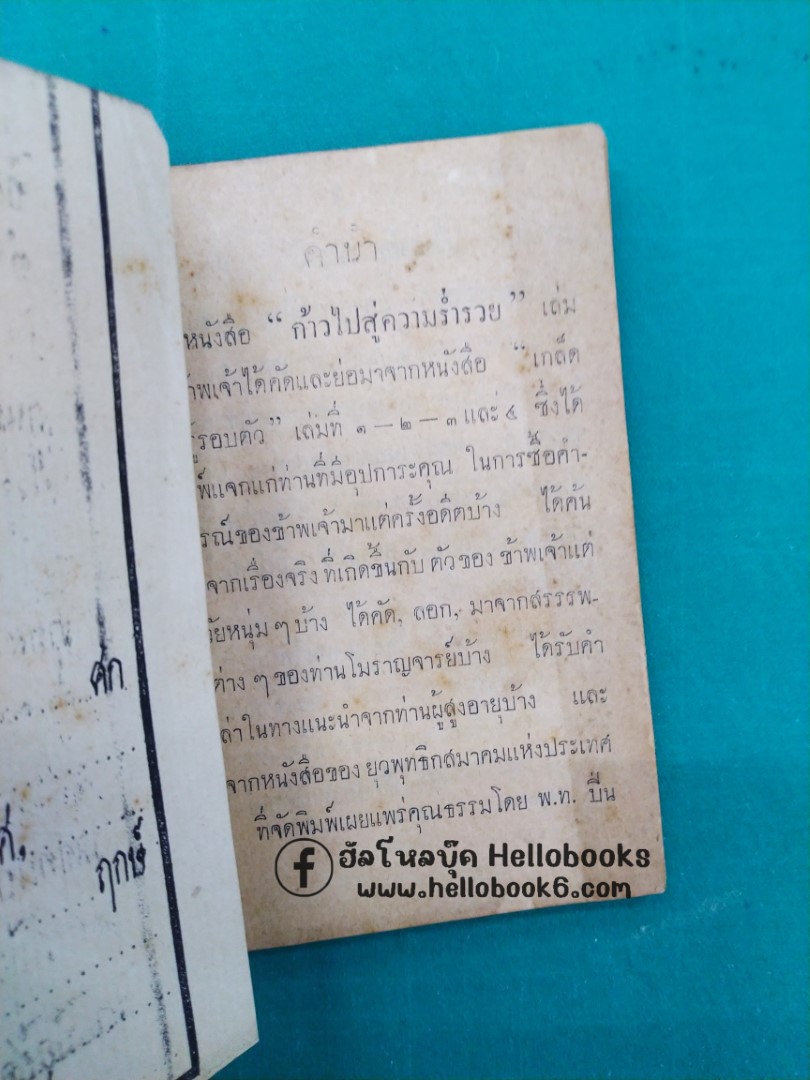 คำนำ
หนังสือ “ ก้าวไปสู่ความร่ำรวย ” เล่ม
พเจ้าได้คัดและย่อมาจากหนังสือ “ เกล็ด
รอบตัว” เล่มที่ ๑ — ๒ — ๓ และ ๔ ซึ่งได้
พ์แจกแก่ท่านที่มีอุปการะคุณ ในการซื้อคำ-
รณ์ของข้าพเจ้ามาแต่ครั้งอดีตบ้าง ได้ค้น
จากเรื่องจริง ที่เกิดขึ้นกับ ตัวของ ข้าพเจ้าแต่
ยหนุ่ม ๆ บ้าง ได้คัด, ลอก, มาจากสรรรพ-
ต่าง ๆ ของท่านโบราญจารย์บ้าง ได้รับคำ
ล่าในทางแนะนำจากท่านผู้สูงอายุบ้าง และ
จากหนังสือของ ยุวพุทธิกสมาคมแห่งประเทศ
ที่จัดพิมพ์เผยแพร่คุณธรรมโดย พ.ท. ปิ่น
ศก
ฤกษ์
f ฮัลโหลบุ๊ค Hellobooks
www.hellobook6.com